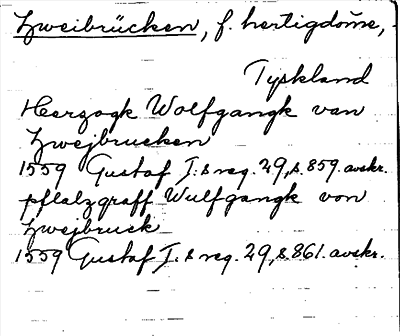 Zweibrücken, f. hertigdöme,
Tyskland
Herzogk Wolfgangk van
Zwejbrucken
1559 Gustaf I:s reg. 29, s. 859. avskr.
pfalzgraff Wulfgangk von
Zwejbruck
1559 Gustaf I:s reg. 29, s. 861. avskr.